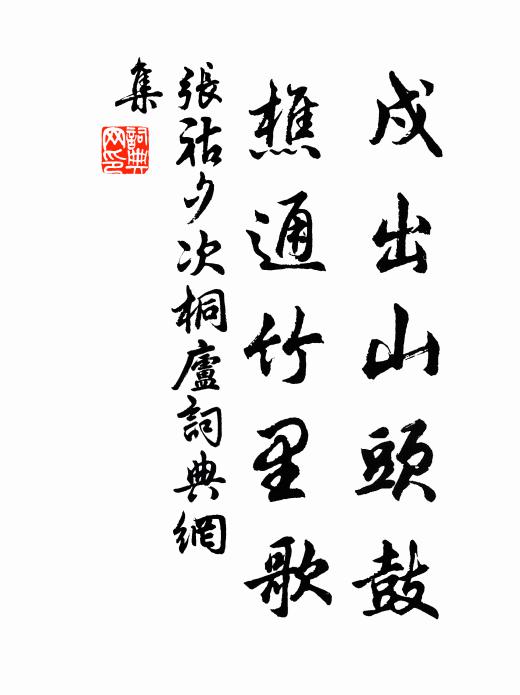 戍出山頭鼓
樵通竹里歌
張祜夕次桐廬詞典網
集
詞典
网印